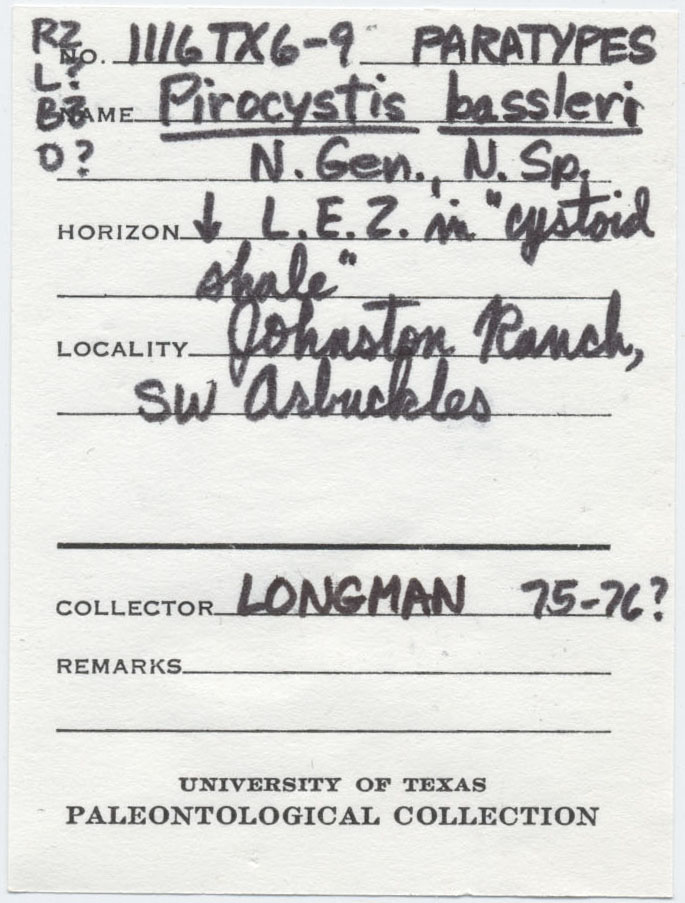 RZ
L?
BZ
O?
NO. 1116TX6-9 PARATYPES
NAME Pirocystis bassleri
N. Gen., N. Sp.
HORIZON ↓ L.E.Z. in "cystoid
shale"
LOCALITY Johnston Ranch,
SW Arbuckles
COLLECTOR LONGMAN 75-76?
REMARKS
UNIVERSITY OF TEXAS
PALEONTOLOGICAL COLLECTION